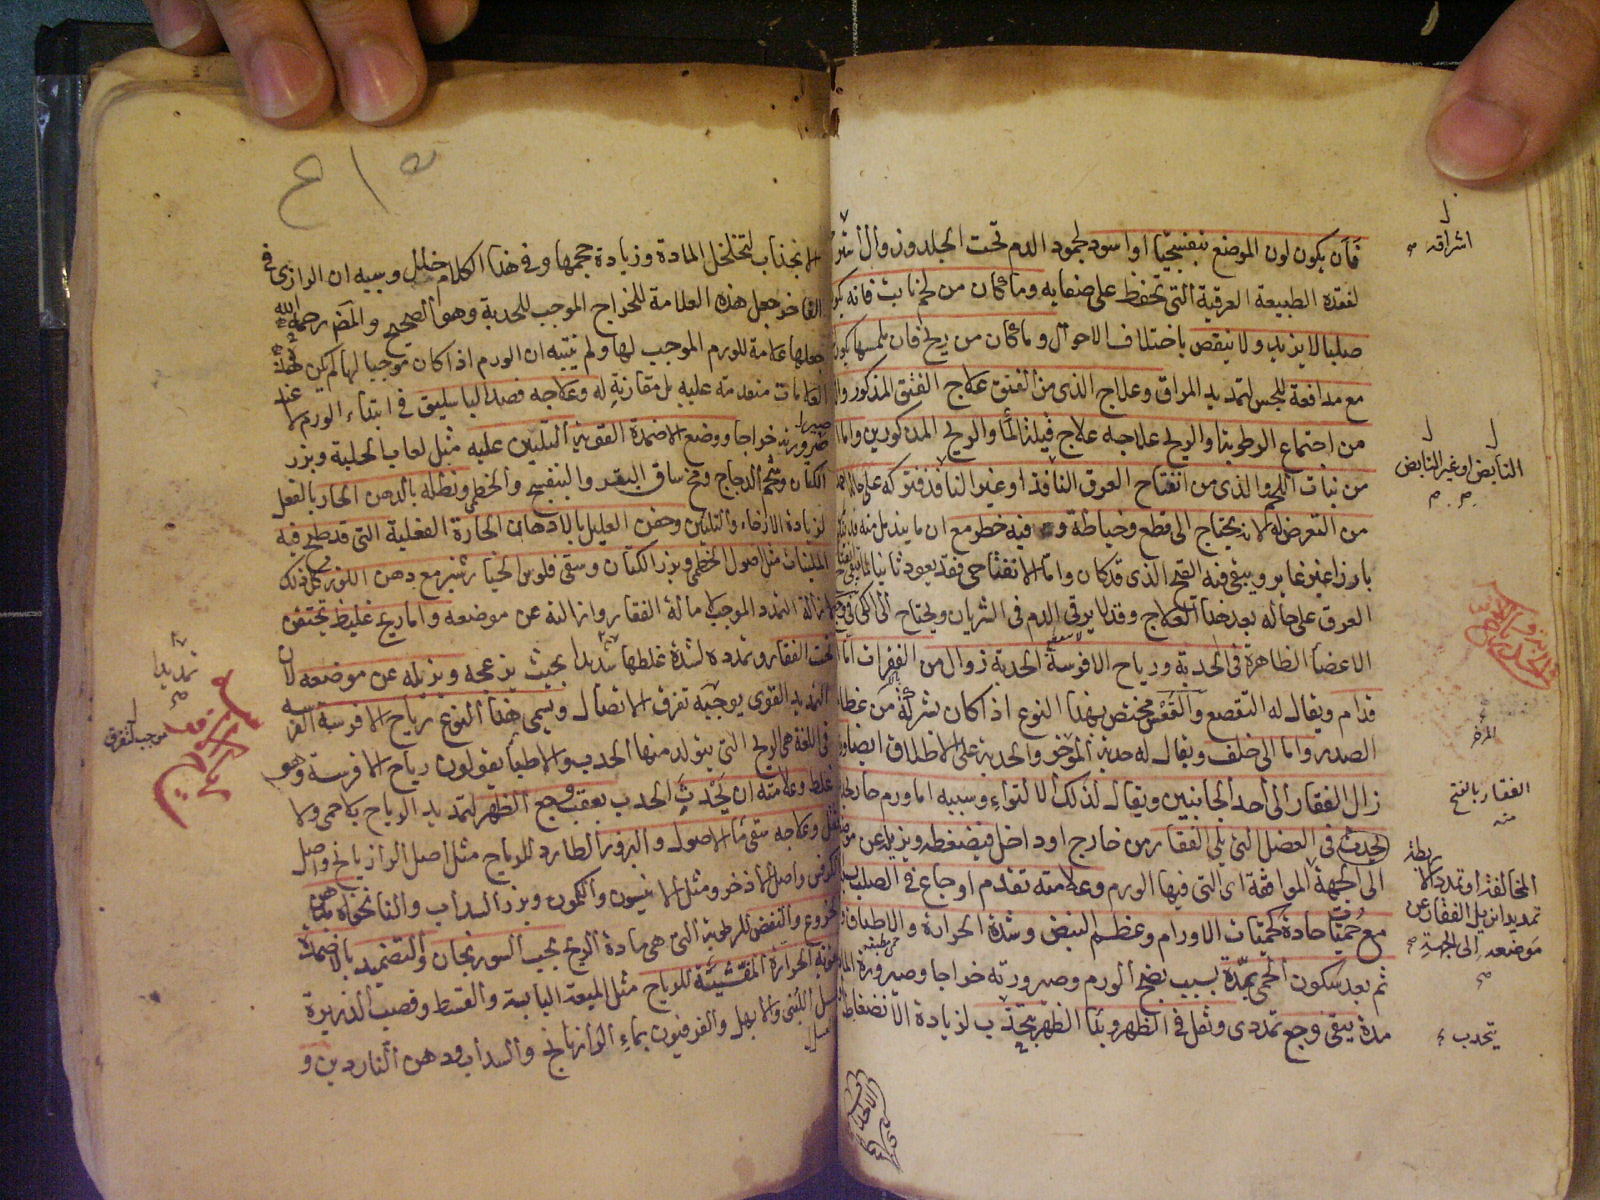 فان يكون لون الموضع بنفسجيا او اسود لجمود الدم تحت الجلد وزوال
لفقده الطبيعة العرقية التى تحفظ على صفايه وما كان من لحم نابت فانه
صلبا لا يزيد ولا ينقص باختلاف الاحوال وما كان من ريح فان ملمسها يكون
مع مدافعة للجس لتمديد المراق وعلاج الذى من الفتق علاج الفتق المذكور
من اجتماع الرطوبة او الريح علاجه علاج قيلة الماء والريح المذكورين واما
من نبات اللحم والذى من انفتاح العرق النافذ او غير النافذ فتركه على حاله
من التعرض له لانه يحتاج الى قطع وخياطة وفيه خطر مع ان ما يندمل منه
بارزا غير غاير ويبقى فيه القبح الذى قد كان واما الانفتاحى فقد يعود ثانيا
العرق على حاله بعد هذا العلاج وقد لا يرقى الدم فى الشريان ويحتاج الى الكى
الاعضا الظاهرة فى الحدبة ورياح الافرسة الحدبة زوال من الفقرات اما
قدام ويقال له التقصع والقعس مختص بهذا النوع اذا كان بشركة من عظام
الصدر واما الى خلف ويقال له حدبة المؤخر والحدبة على الاطلاق ايضا
زال الفقار الى احد الجانبين ويقال لذلك الالتواء وسببه اما ورم حار
يحدث فى العضل التى يلى الفقار من خارج او داخل فيضغطه ويزيله عن
الى الجهة الموافقة اى التى فيها الورم وعلامته تقدم اوجاع فى الصلب
مع حميات حادة كحميات الاورام وعظم النبض وشدة الحرارة والاطباق
ثم بعد سكون الحمى بمدة بسبب نضج الورم وصيرورته خراجا وصيرورة المادة
مدة يبقى وجع تمددى وثقل فى الظهر وبما الظهر يتحدب لزيادة الانضغاط
اشراقه
النابض او غير النابض
المؤخر
الفقار بالفتح
منه
المخالفة او تمدد الاربطة
تمديدا يزيل الفقار عن
موضعه الى الجهة
يتحدب
الانجذاب لتخلخل المادة وزيادة حجمها وفى هذا الكلام خلل وسببه ان الرازى فى
الفاخر جعل هذه العلامة للخراج الموجب للحدبة وهو الصحيح والمص رحمه الله
جعلها علامة للورم الموجب لها ولم يتنبه ان الورم اذا كان موجبا لها لم يكن هذه
العلامات متقدمة عليه بل مقارنة له وعلاجه فصد الباسليق فى ابتداء الورم لا عند
صيرورته خراجا ووضع الاضمدة القوية التليين عليه مثل لعاب الحلبة وبزر
الكتان وشحم الدجاج ومخ ساق البقر والبنفسج والخطمى ونطله بالدهن الحار بالفعل
لزيادة الارخاء والتليين وحقن العليل بالادهان الحارة الفعلية التى قد طبخ فيه
الملينات مثل اصول الخطمى وبزر الكتان وسقى فلوس الخيار شنبر مع دهن اللوز كل ذلك
لازالة التمدد الموجب لامالة الفقار وازالته عن موضعه واما ريح غليظ يحتقن
تحت الفقار وتمدده لشدة غلظها شديدا بحيث يزعجه ويزيله عن موضعه لان
التمديد القوى يوجب تفرق الاتصال ويسمى هذا النوع رياح الافرسة الفرسة
فى اللغة هى الريح التى يتولد منها الحدب والاطبا يقولون رياح الافرسة وهو
غلط وعلامته ان يحدث الحدب بعقب وجع الظهر لتمديد الرياح بلا حمى ولا
ثقل وعلاجه سقى ماء الاصول والبزور الطارد للرياح مثل اصل الرازيانج واصل
الكرفس واصل الاذخر ومثل الانيسون والكمون وبزر السداب والنانخواه
الخروع والنفض للرطوبة التى هى مادة الريح بحب السورنجان والتضميد بالاضمدة
القوية الحرارة المفشية للرياح مثل الميعة اليابسة والقسط وقصب الذريرة
والابهل والفرفيون بماء الرازيانج والسداب ودهن الناردين و
تمديدا
موجب لتفرق